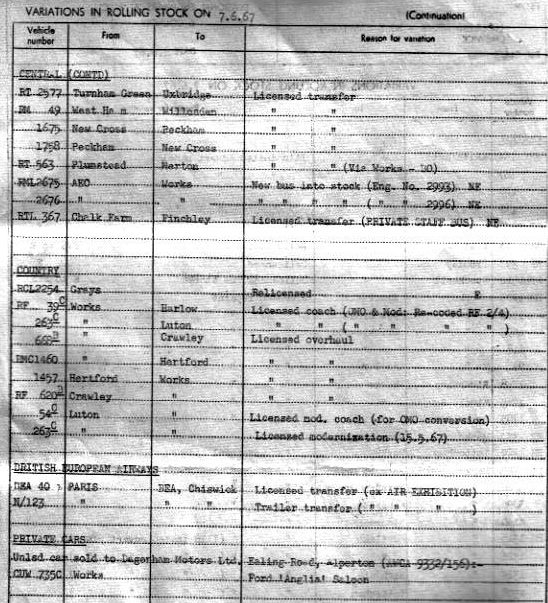 VARIATIONS IN ROLLING STOCK ON 7.6.67 (Continuation)
Vehicle number From To Reason for variation
CENTRAL (CONTD)
RT 2577 Turnham Green Uxbridge Licensed transfer
RM 49 West Ham Willesden " "
1675 New Cross Peckham " "
1758 Peckham New Cross " "
RT 563 Plumstead Merton " " (Via Works - DO)
RML2675 AEC Works New bus into stock (Eng. No. 2993) NE
2676 " " " " " " ( " " 2996) NE
RTL 367 Chalk Farm Finchley Licensed transfer (PRIVATE STAFF BUS) NE
COUNTRY
RCL2254 Grays Relicensed E
RF 39C Works Harlow Licensed coach (OMO & Mod: Re-coded RF 2/4)
263C " Luton " " ( " " " " )
Crawley Licensed overhaul
RMC1460 " Hertford " "
1457 Hertford Works " "
RF 620 Crawley " " "
54C Luton " Licensed mod. coach (for OMO conversion)
263C " " Licensed modernization (15.5.67)
BRITISH EUROPEAN AIRWAYS
BEA 40 PARIS BEA, Chiswick Licensed transfer (ex AIR EXHIBITION)
N/123 " " " Trailer transfer ( " " " )
PRIVATE CARS
Unlsd car sold to Dagenham Motors Ltd. Ealing Road, Alperton (AMCA 9332/156):-
CUW 735C Works Ford 'Anglia' Saloon